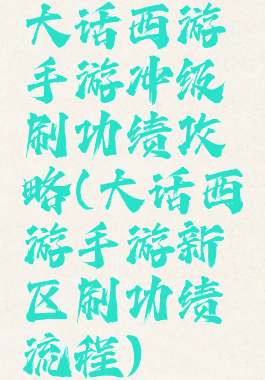 大话西游
手游冲级
刷功绩攻
略(大话西
游手游新
区刷功绩
流程)